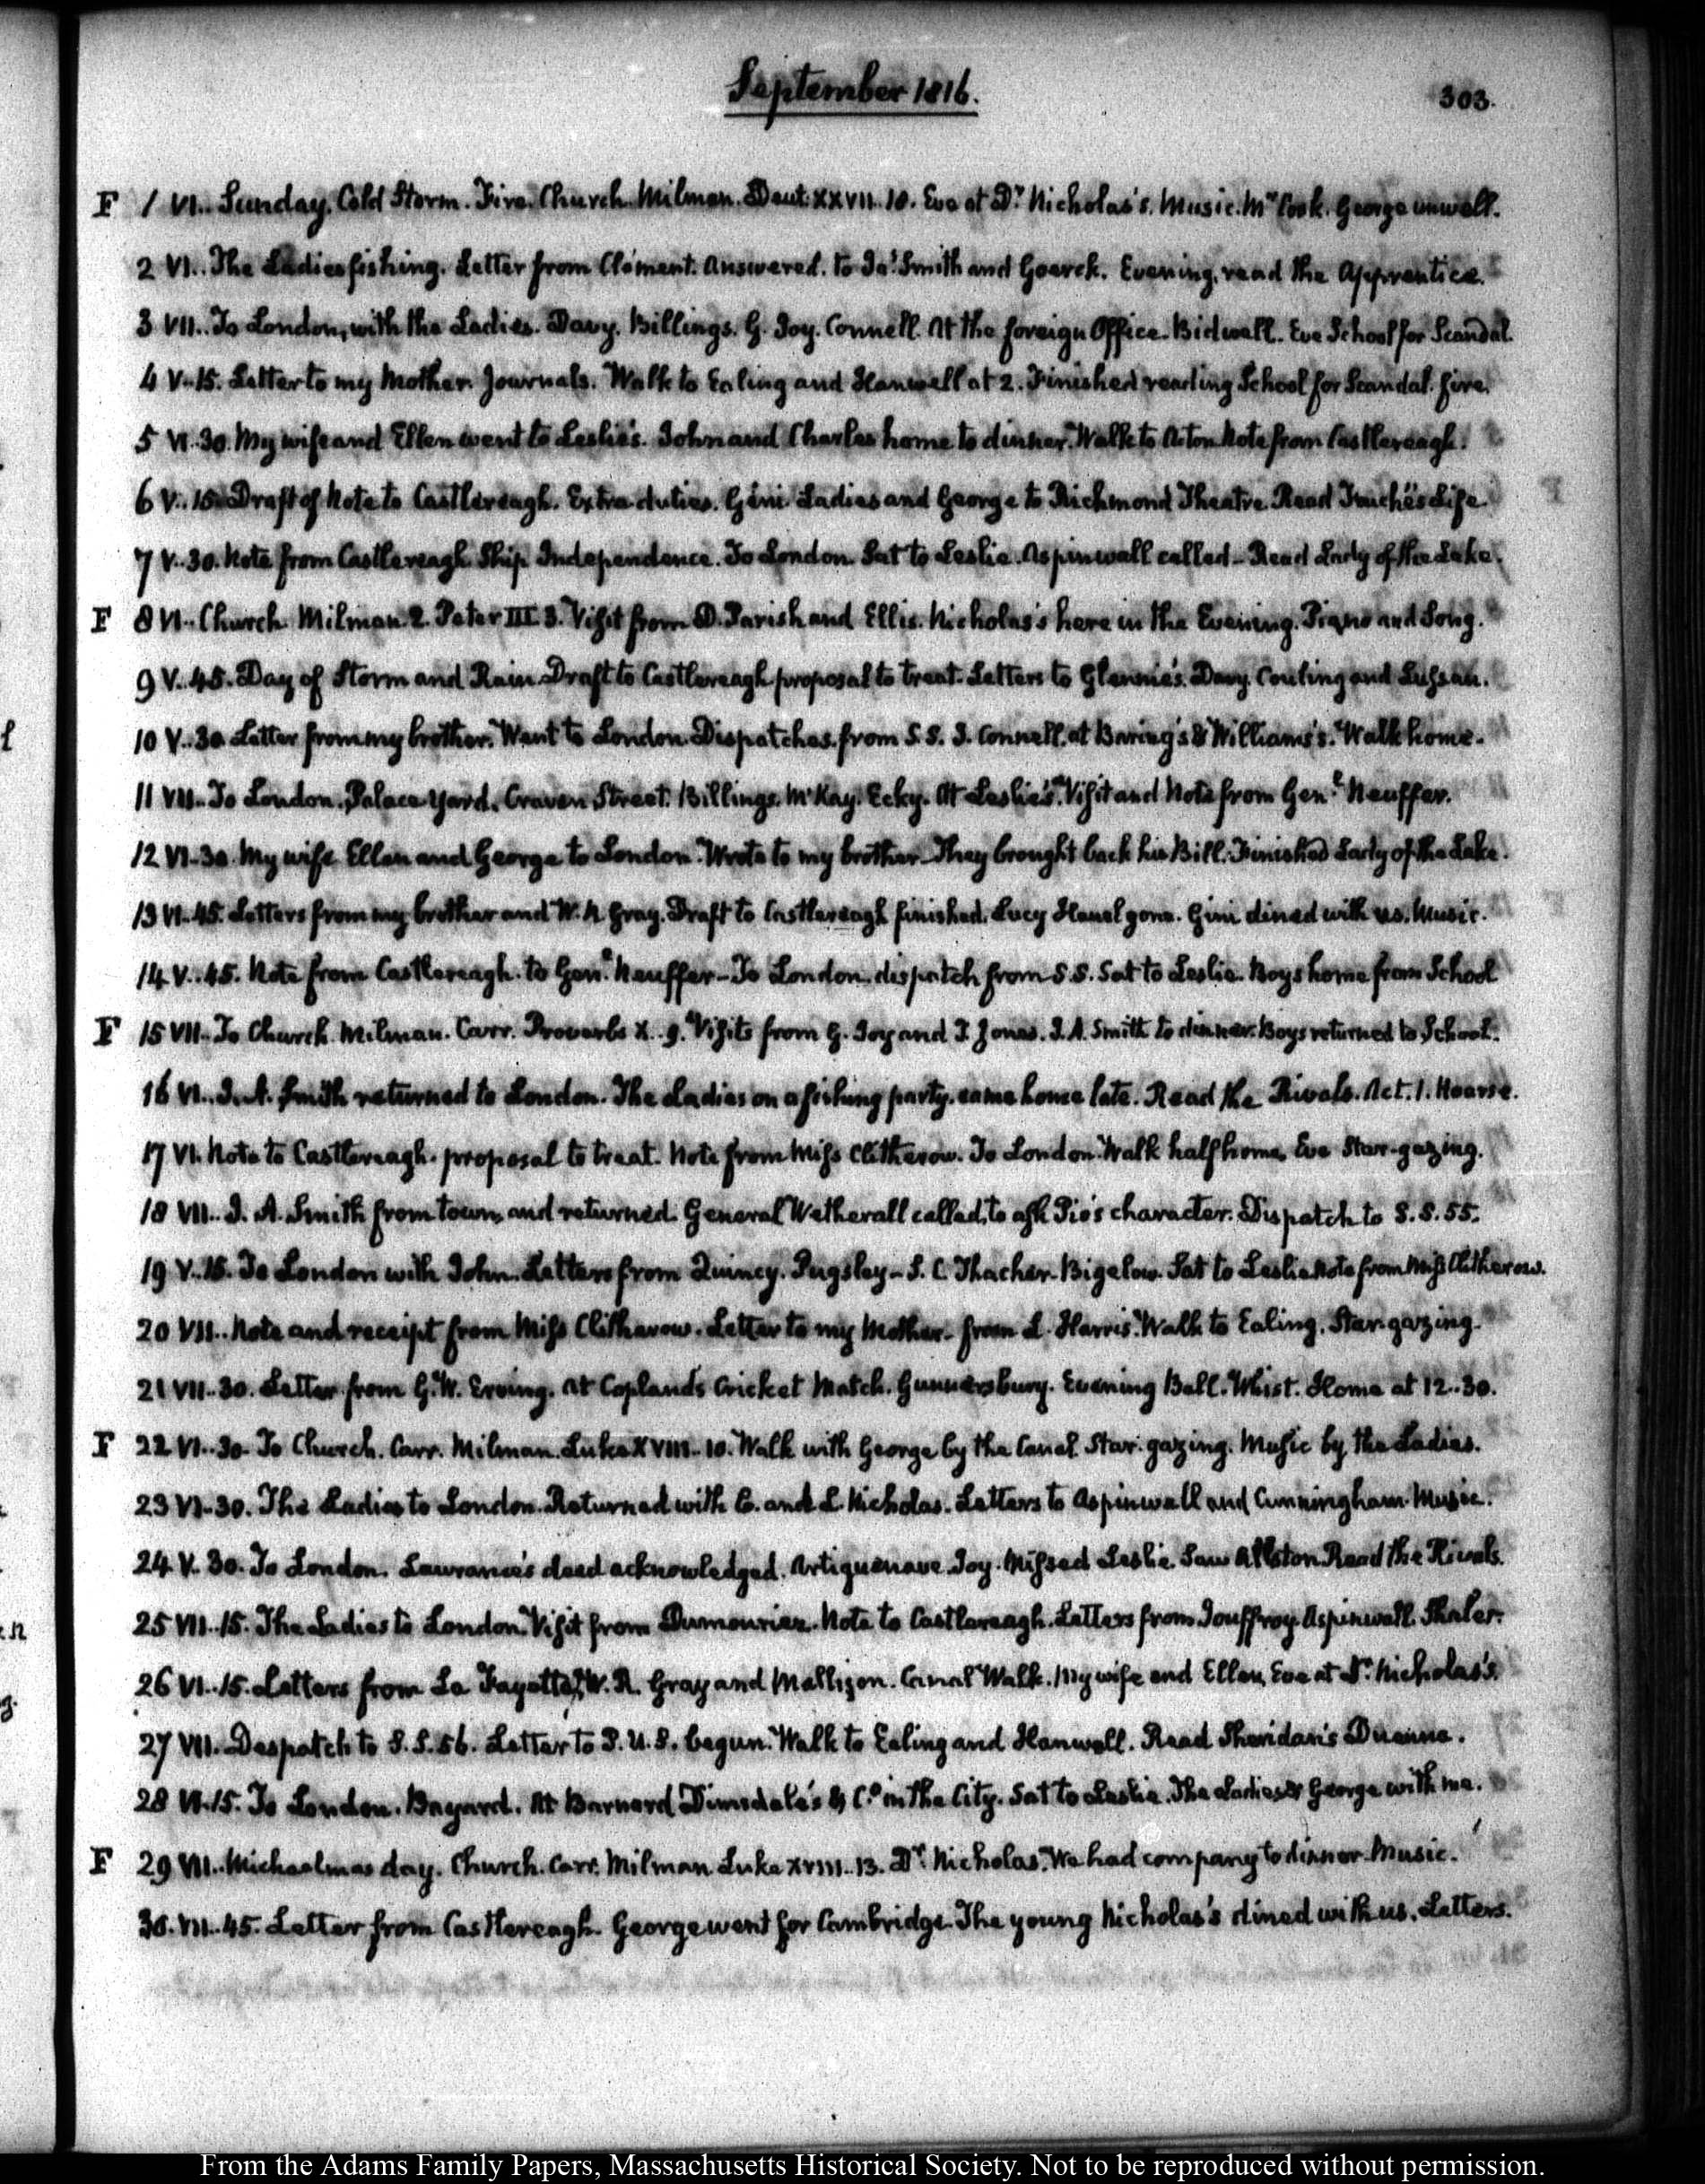 September 1816.
303.
F 1 VI.. Sunday. Cold Storm. Fire. Church. Milman. Deut. XXVII. 10. Eve at Dr. Nicholas's. Music. Mr Cook. George unwell.
2 VI.. The Ladies fishing. Letter from Clement. Answered. to Ja's Smith and Evening, read the Apprentice.
3 VII.. To London, with the Ladies. Davy. Billings. G. Joy. Connell. At the foreign Office. Bidwell. Eve School for Scandal.
4 V..15. Letter to my Mother. Journals. Walk to Ealing and Hanwell at 2. Finished reading School for Scandal. fire.
5 VI..30. My wife and Ellen went to Leslie's. John and Charles home to dinner. Walk to Acton Note from Castlereagh.
6 V..15. Draft of Note to Castlereagh. Extra duties. Gini. Ladies and George to Richmond Theatre. Read Life.
7 V..30. Note from Castlereagh Ship Independence. To London. Sat to Leslie. Aspinwall called - Read Lady of the Lake.
F 8 VI.. Church. Milman. 2. Peter III. 3. Visit from D. Parish and Ellis. Nicholas's here in the Evening. Piano and Song.
9 V..45. Day of Storm and Rain. Draft to Castlereagh proposal to treat. Letters to Glennie's. Davy. Couling and Lussan.
10 V..30 Letter from my brother. Went to London. Dispatches from S. S. J. Connell. at Baring's & Williams's. Walk home.
11 VII.. To London. Palace yard. Craven Street. Billings. McKay. Ecky. At Leslie's. Visit and Note from Genl. Neuffer.
12 VI..30. My wife Ellen and George to London. Wrote to my brother. They brought back his Bill. Finished Lady of the Lake.
13 VI..45. Letters from my brother and W. R. Gray. Draft to Castlereagh finished. Lucy Houel gone. Gini dined with us. Music.
14 V..45. Note from Castlereagh. to Genl. Neuffer - To London. dispatch from S.S. Sat to Leslie. Boys home from School
F 15 VII.. To Church. Milman. Carr. Proverbs X. 9. Visits from G. Joy and T. Jones. J. A. Smith to dinner. Boys returned to School.
16 VI.. J. A. Smith returned to London. The Ladies on a fishing party. came home late. Read the Rivals. Act. 1. Hoarse.
17 VI. Note to Castlereagh. proposal to treat. Note from Miss Clitherow. To London. Walk half home. Eve Star-gazing.
18 VII.. J. A. Smith from town, and returned. General Wetherall called, to ask Pio's character. Dispatch to S. S. 55.
19 V..15. To London with John. Letters from Quincy. Pugsley - S. C. Thacher. Bigelow. Sat to Leslie. Note from Miss Clitherow.
20 VII.. Note and receipt from Miss Clitherow. Letter to my Mother - from L. Harris. Walk to Ealing. Star-gazing.
21 VII..30. Letter from G. W. Erving. At Coplands Cricket Match. Gunnersbury. Evening Ball. Whist. Home at 12..30.
F 22 VI..30. To Church. Carr. Milman. Luke XVIII..10. Walk with George by the Canal. Star-gazing. Music by the Ladies.
23 VI..30. The Ladies to London. Returned with C. and L. Nicholas. Letters to Aspinwall and Cunningham. Music.
24 V..30. To London. Lawrance's deed acknowledged. Artiguenave. Joy. Missed Leslie. Saw Allston. Read the Rivals.
25 VII..15. The Ladies to London. Visit from Dumouriez. Note to Castlereagh. Letters from Jouffroy. Aspinwall. Shaler.
26 VI..15. Letters from La Fayette, W. R. Gray and Mallizon. Canal Walk. My wife and Ellen, Eve at Dr. Nicholas's.
27 VII. Despatch to S. S. 56. Letter to P. U. S. begun. Walk to Ealing and Hanwell. Read Sheridan's Duenna.
28 VI..15. To London. Bayard. At Barnard Dimsdale's & Co. in the City. Sat to Leslie. The Ladies & George with me.
F 29 VII.. Michaelmas day. Church. Carr. Milman. Luke XVIII..13. Dr. Nicholas. We had company to dinner. Music.
30. VII..45. Letter from Castlereagh. George went for Cambridge. The young Nicholas's dined with us. Letters.
From the Adams Family Papers, Massachusetts Historical Society. Not to be reproduced without permission.